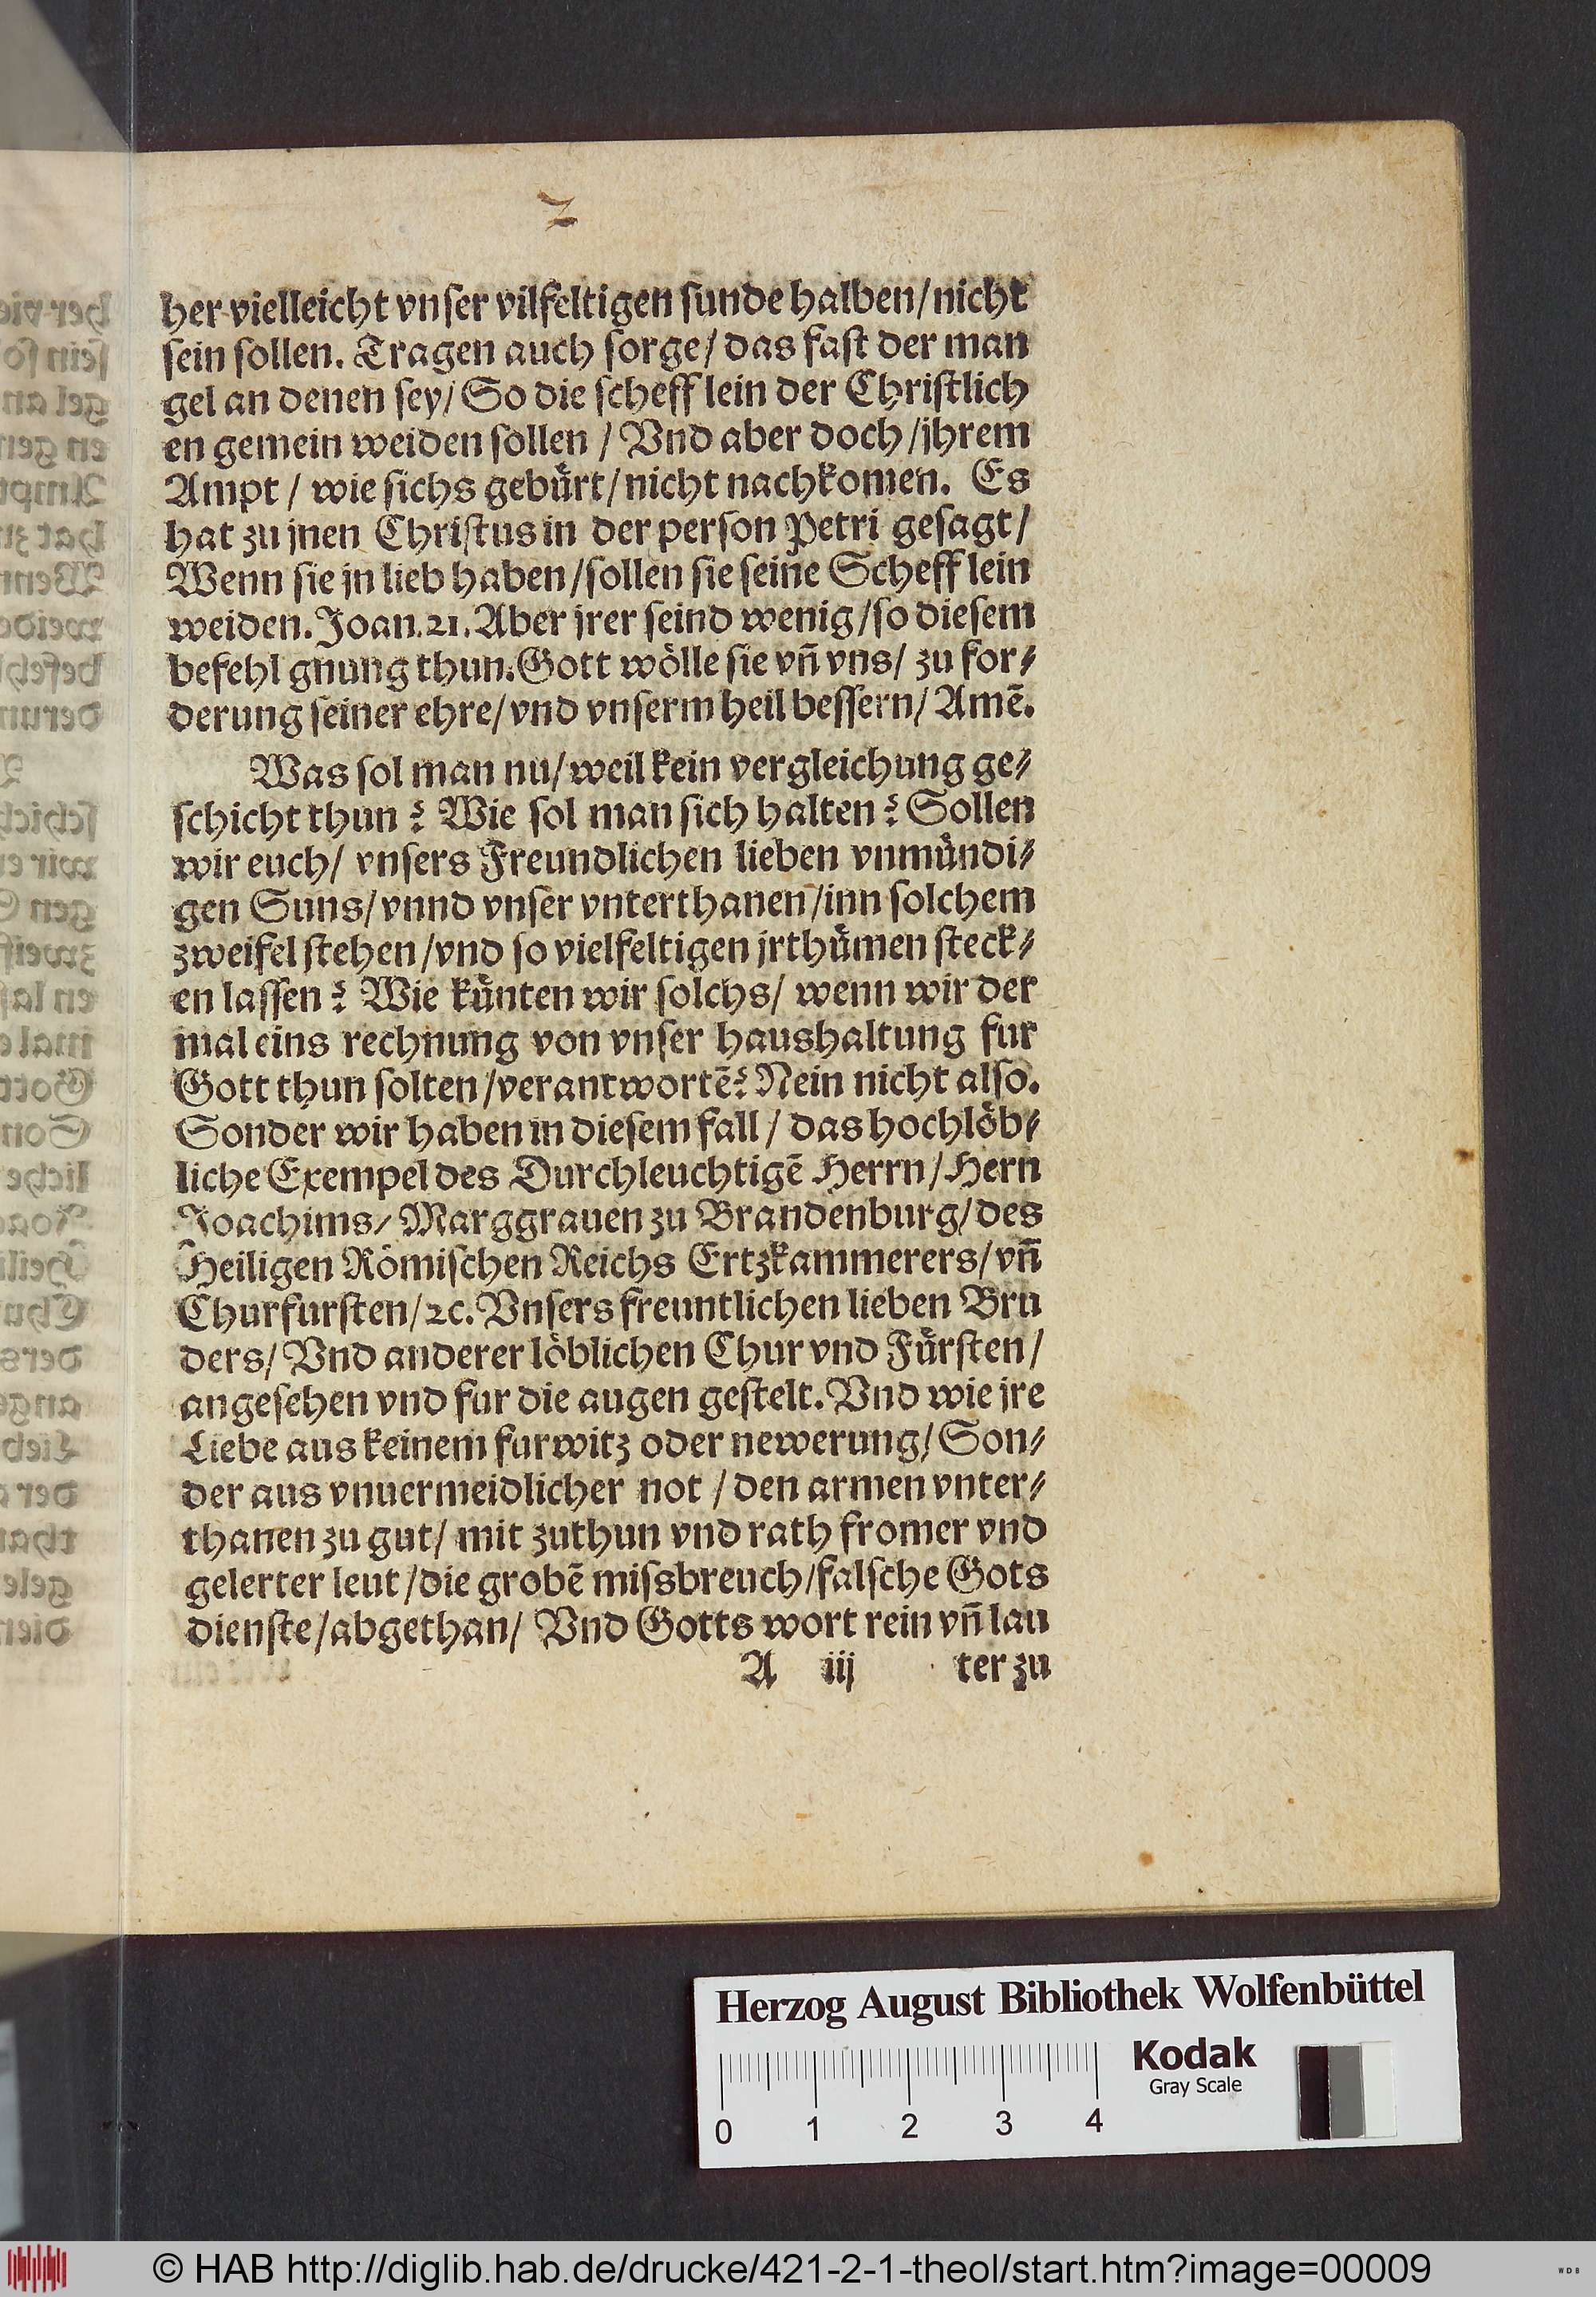 2
her vielleicht vnser vilfeltigen sunde halben/nicht
sein sollen. Tragen auch sorge/ das fast der man
gel an denen sey/ So die schefflein der Christlich
en gemein weiden sollen / Vnd aber doch /jhrem
Ampt / wie sichs gebuͤrt/nicht nachkomen. Es
hat zu jnen Christus in der person Petri gesagt/
Wenn sie jn lieb haben/sollen sie seine Schefflein
weiden. Joan. 21. Aber jrer seind wenig/so diesem
befehl gnung thun. Gott woͤlle sie vn̄ vns/ zu for⸗
derung seiner ehre/ vnd vnserm heil bessern/ Amē.
Was sol man nu/ weil kein vergleichung ge⸗
schicht thun ? Wie sol man sich halten ? Sollen
wir euch/ vnsers Freundlichen lieben vnmuͤndi⸗
gen Suns/ vnnd vnser vnterthanen /inn solchem
zweifel stehen /vnd so vielfeltigen jrthuͤmen steck⸗
en lassen ? Wie kuͤnten wir solchs/ wenn wir der
mal eins rechnung von vnser haushaltung fur
Gott thun solten /verantwortē? Nein nicht also.
Sonder wir haben in diesem fall / das hochloͤb⸗
liche Exempel des Durchleuchtigē Herrn/ Hern
Joachims/ Marggrauen zu Brandenburg/ des
Heiligen Roͤmischen Reichs Ertzkammerers/ vn̄
Churfursten/ ꝛc. Vnsers freuntlichen lieben Bru
ders/ Vnd anderer loͤblichen Chur vnd Fuͤrsten/
angesehen vnd fur die augen gestelt. Vnd wie jre
Liebe aus keinem furwitz oder newerung/ Son⸗
der aus vnuermeidlicher not / den armen vnter⸗
thanen zu gut/ mit zuthun vnd rath fromer vnd
gelerter leut /die grobē missbreuch/falsche Gots
dienste/abgethan/ Vnd Gotts wort rein vn̄ lau
A iij ter zu
Herzog August Bibliothek Wolfenbüttel
Kodak
Gray Scale
0 1 2 3 4
© HAB http://diglib.hab.de/drucke/421-2-1-theol/start.htm?image=00009
WDB